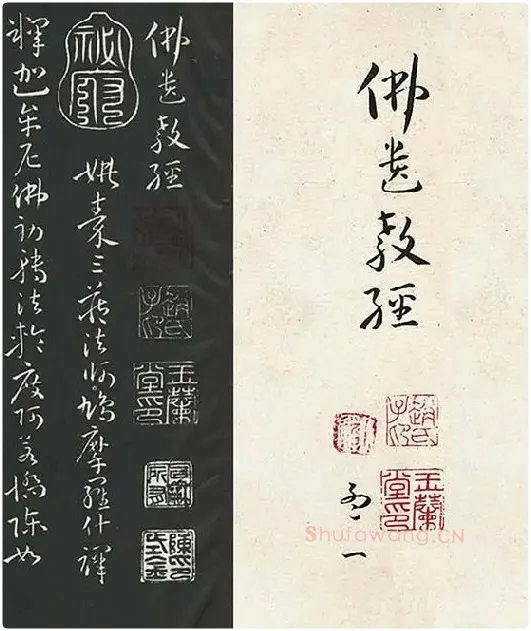 佛遺教經
玉蘭堂印
Shufawang.CN
一
佛遺教經
玉蘭堂印
姚秦三藏法師鳩摩羅什譯
釋迦牟尼佛初轉法輪度阿若憍陳如